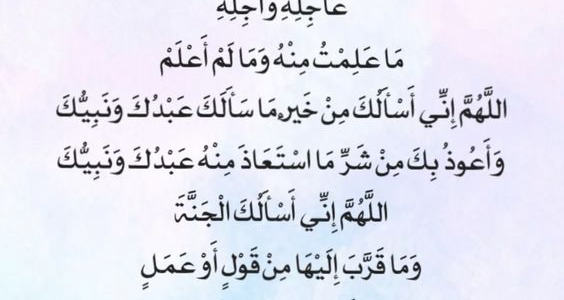 عَاجِلِهِ وَآجِلِهِ
مَا عَلِمْتُ مِنْهُ وَمَا لَمْ أَعْلَمْ
اللَّهُمَّ إِنِّي أَسْأَلُكَ مِنْ خَيْرِ مَا سَأَلَكَ عَبْدُكَ وَنَبِيُّكَ
وَأَعُوذُ بِكَ مِنْ شَرِّ مَا اسْتَعَاذَ مِنْهُ عَبْدُكَ وَنَبِيُّكَ
اللَّهُمَّ إِنِّي أَسْأَلُكَ الْجَنَّةَ
وَمَا قَرَّبَ إِلَيْهَا مِنْ قَوْلٍ أَوْ عَمَلٍ